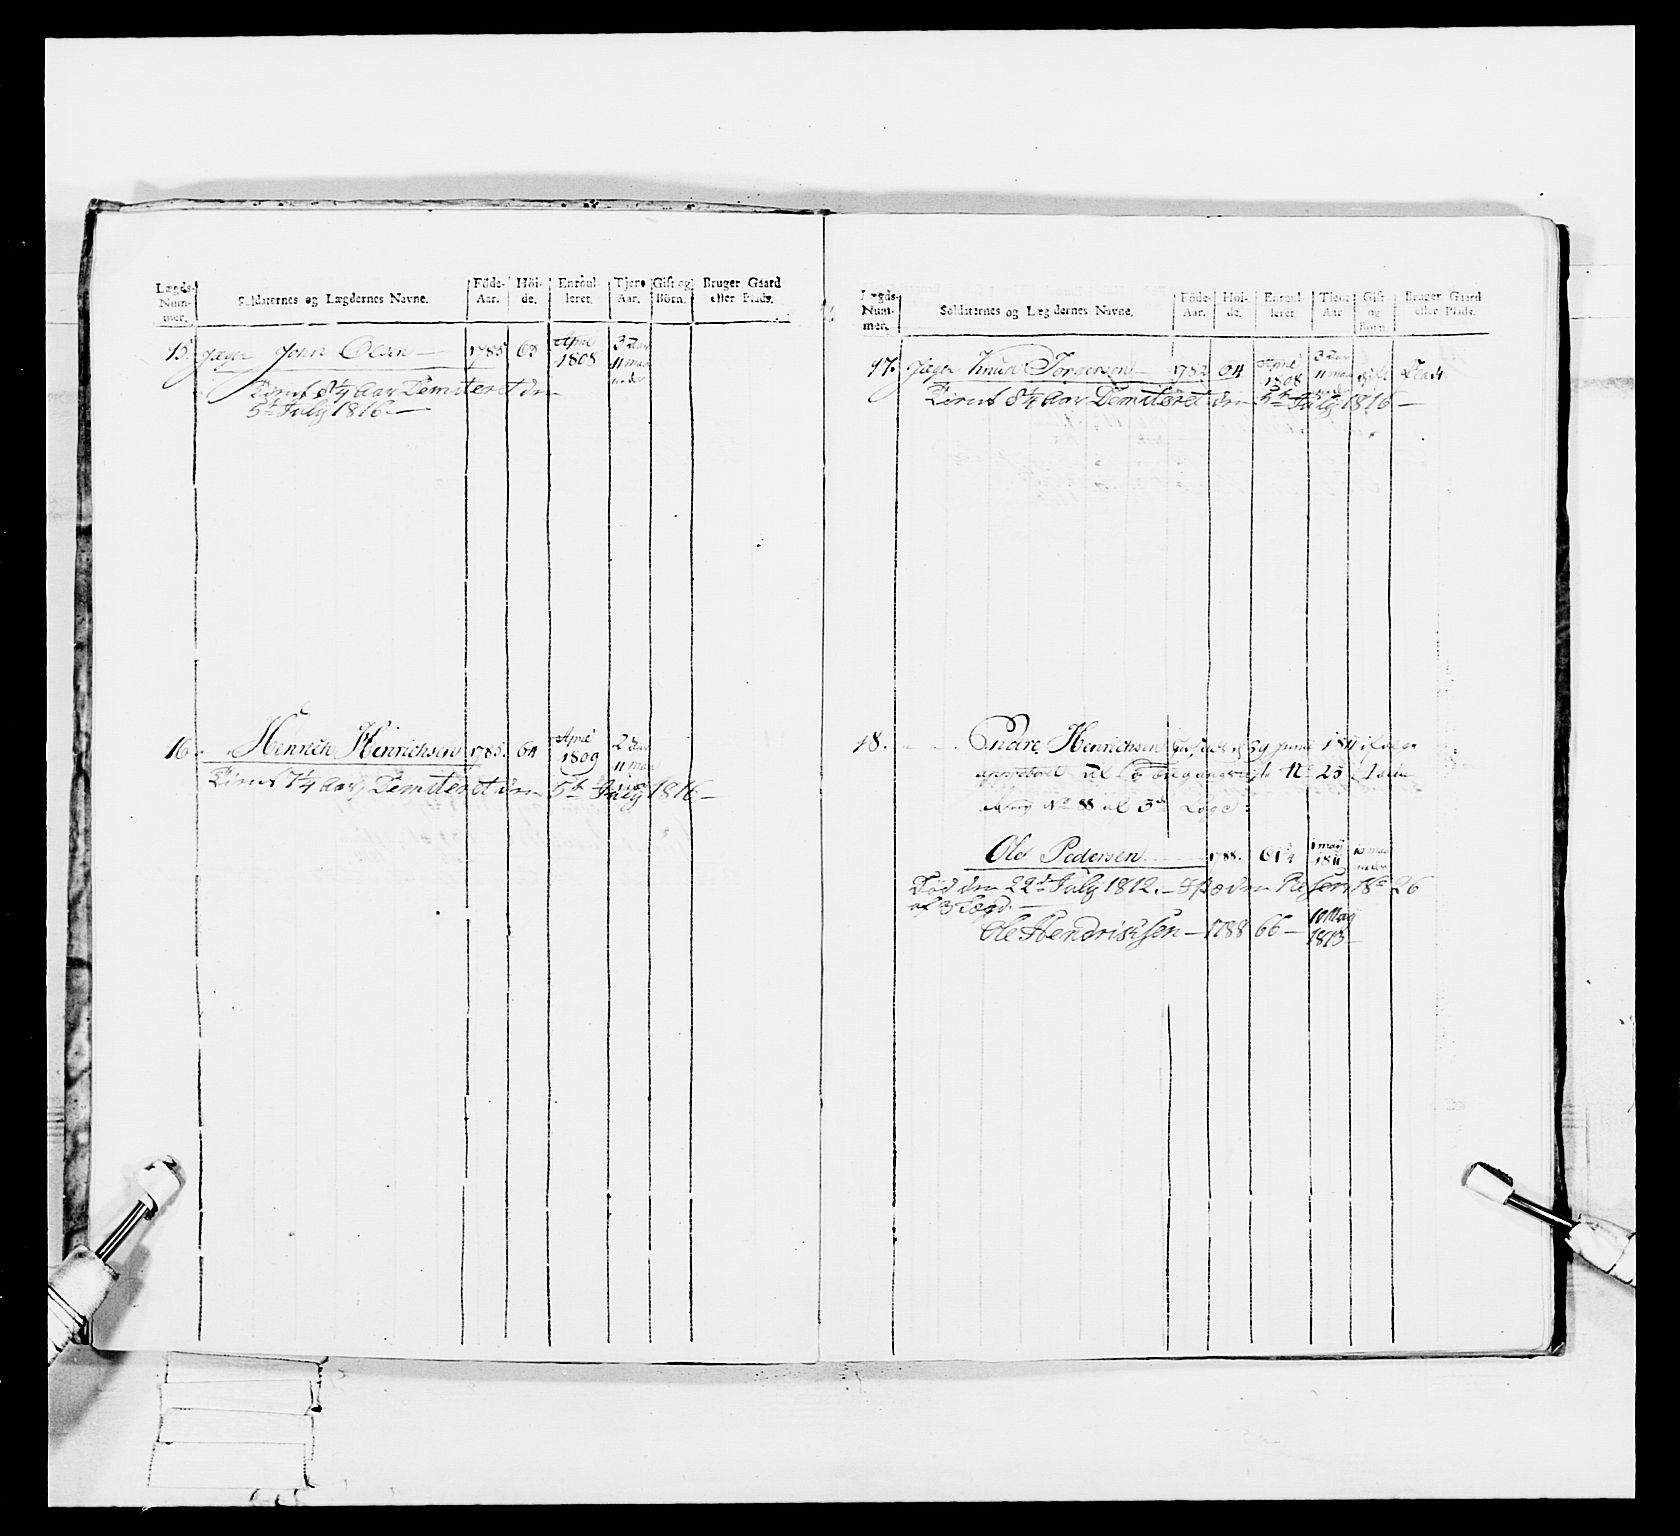 Lægds-Num-mer. Soldaternes og Lægdernes Navne. Föde-Aar. Höi-de. Enroul-leret. Tjene Aar. Gift og Börn. Bruger Gaard eller Plads.
15. Jæger John Olsen — 1785 63 April 1808 3 Aar 11 maa neder
Tient 8 1/4 Aar Demiteret den
5te July 1816 —
16. Henrich Hinrichsen 1785. 64 April 1809 2 Aar 11 maa
Tient 7 1/4 Aar, Demiteret den 5te July 1816 —
Lægds-Num-mer. Soldaternes og Lægdernes Navne. Föde-Aar. Höi-de. Enroul-leret Tiene Aar Gift og Börn. Bruger Gaard eller Plads.
17. Jæger Knud Torgersen — 1782 64 April 1808 3 Aar 11 maa neder gift Plads
Tient 8 1/4 Aar Demiteret den 5te July 1816 —
18. Endre Henrichsen 29 Juni 1811 ifølge
approberet No 25
No 88 al 3de Lægd
Ole Pedersen 1788. 61 3/4 1 may 1811 10 maa neder
Död den 22de July 1812. — 18 26
af 3 Lægd. —
Ole Hendrichsen — 1788 66 — 10 May 1813 —